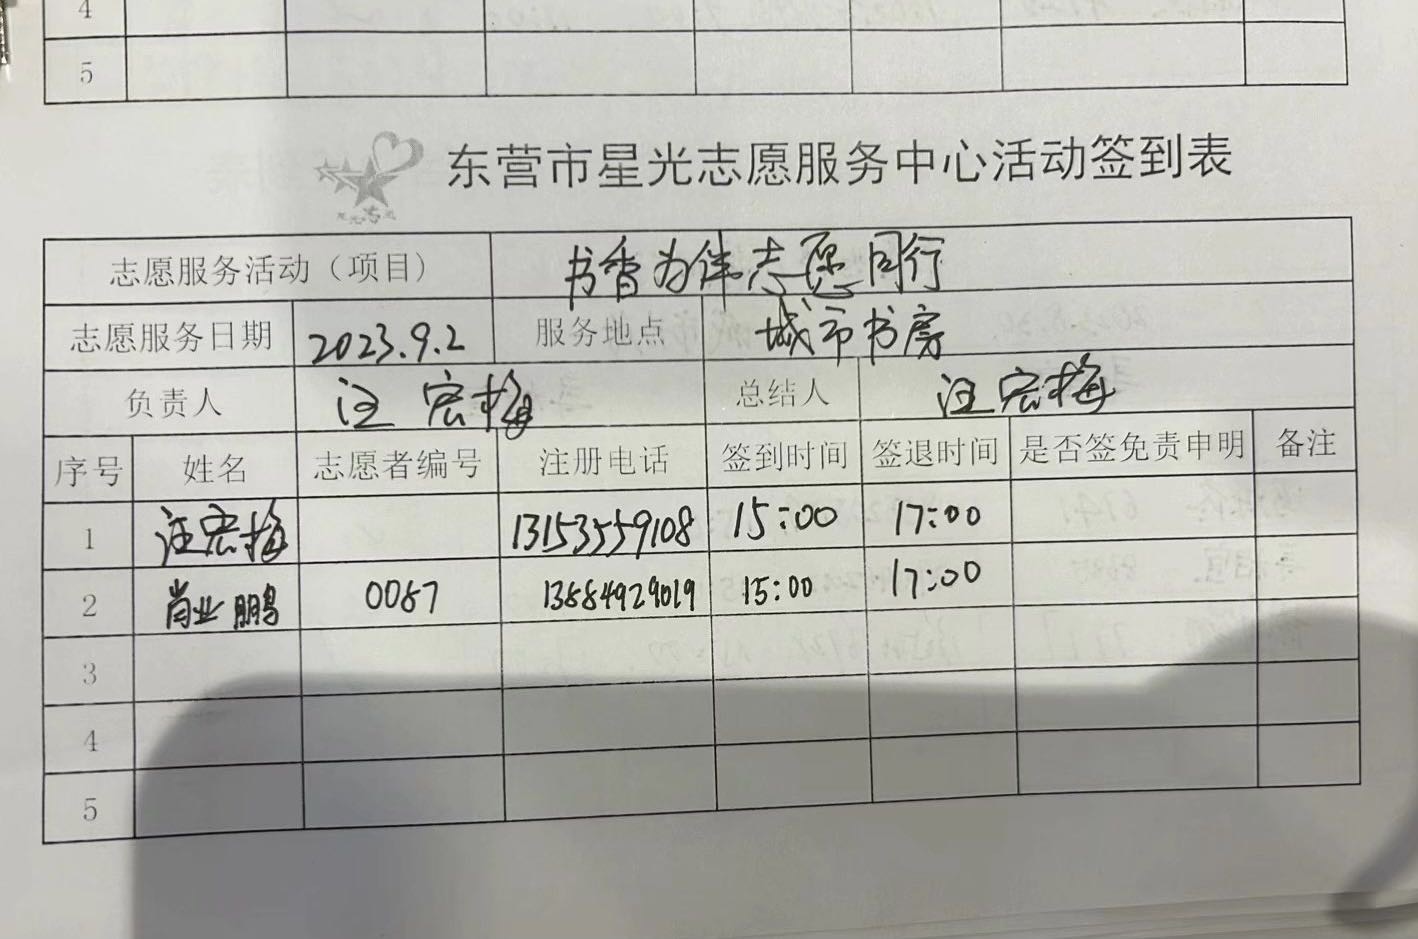 4
5
东营市星光志愿服务中心活动签到表
志愿服务活动（项目） 书香为伴志愿同行
志愿服务日期 2023.9.2 服务地点 城市书房
负责人 汪宏梅 总结人 汪宏梅
序号 姓名 志愿者编号 注册电话 签到时间 签退时间 是否签免责申明 备注
1 汪宏梅 13153559108 15:00 17:00
2 肖业鹏 0087 13884929019 15:00 17:00
3
4
5